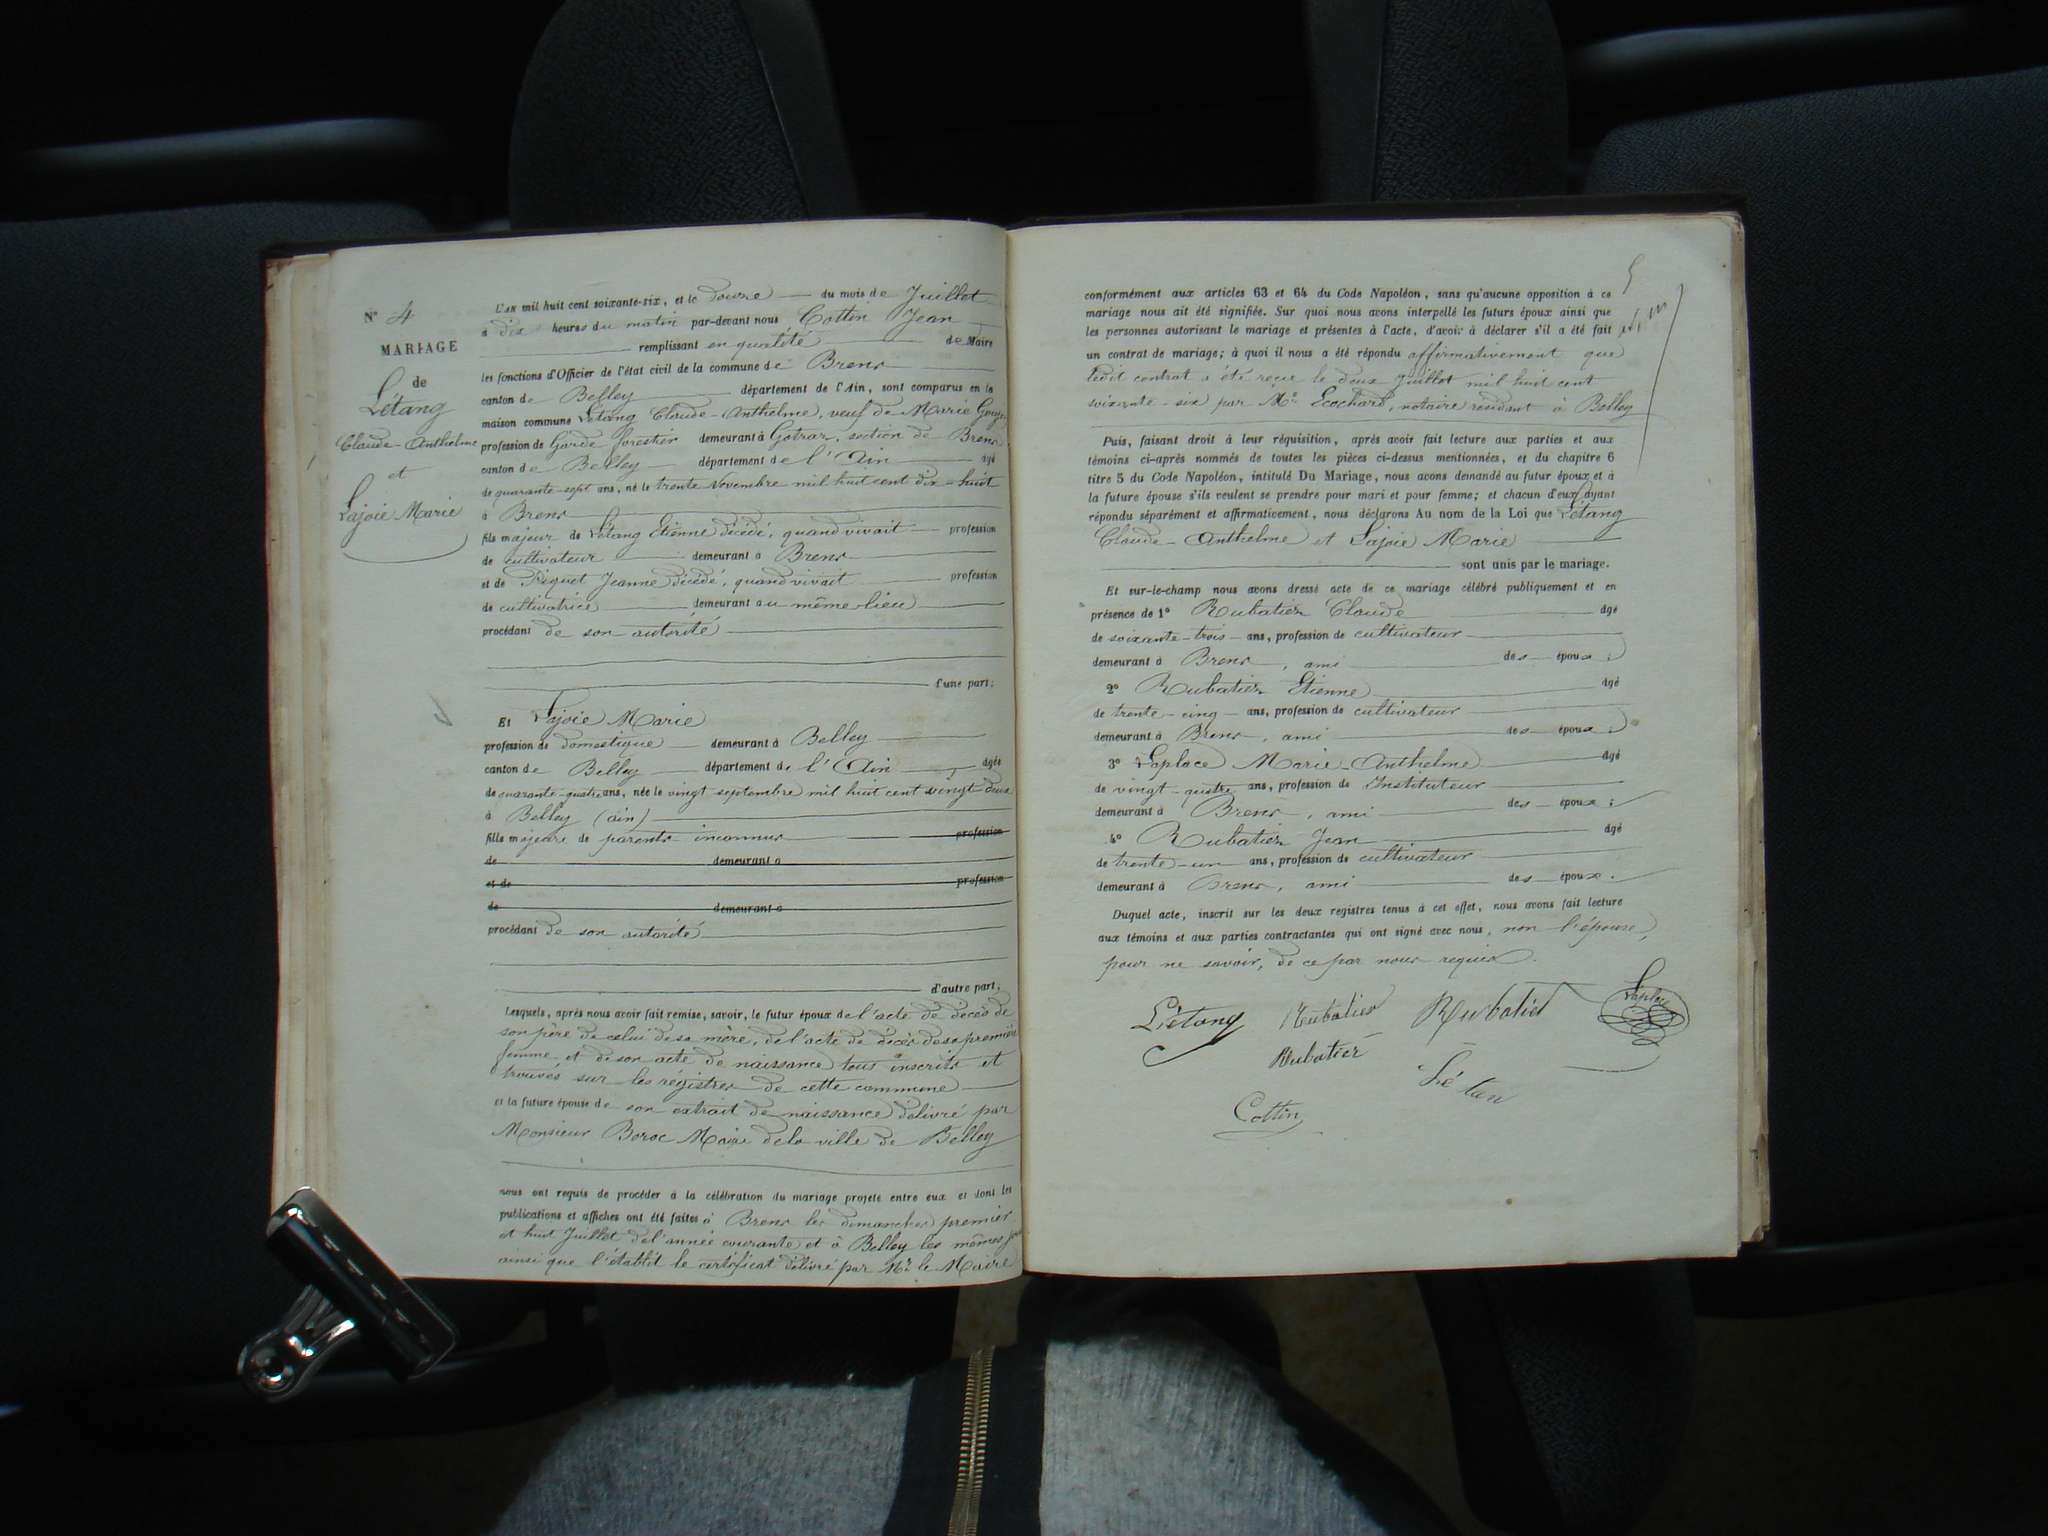 N° 4
MARIAGE
de
Létang
Claude-Anthelme
et
Lajoie Marie
L'AN mil huit cent soixante-six, et le douze du mois de Juillet
à dix heures du matin par-devant nous Cottin Jean
remplissant en qualité de Maire
les fonctions d'Officier de l'état civil de la commune de Brens
canton de Belley département de l'Ain, sont comparus en la
maison commune Létang Claude-Anthelme, veuf de Marie
profession de Garde forestier demeurant à Gotraz, section de Brens
canton de Belley département de l'Ain âgé
de quarante-sept ans, né le trente Novembre mil huit cent dix-huit
à Brens
fils majeur de Létang Etienne décédé, quand vivait profession
de cultivateur demeurant à Brens
et de Piquet Jeanne décédé, quand vivait profession
de cultivatrice demeurant au même lieu
procédant de son autorité
d'une part;
Et Lajoie Marie
profession de domestique demeurant à Belley
canton de Belley département de l'Ain âgée
de quarante-quatre ans, née le vingt septembre mil huit cent vingt deux
à Belley (ain)
fille majeure de parents inconnus profession
de demeurant à
et de profession
de demeurant à
procédant de son autorité
d'autre part;
Lesquels, après nous avoir fait remise, savoir, le futur époux de l'acte de décès de
son père de celui de sa mère, de l'acte de décès de sa première
femme et de son acte de naissance tous inscrits et
trouvés sur les régistres de cette commune
et la future épouse de son extrait de naissance délivré par
Monsieur Boroc Maire de la ville de Belley
nous ont requis de procéder à la célébration du mariage projeté entre eux et dont les
publications et affiches ont été faites à Brens les dimanches premier
et huit Juillet de l'année courante et à Belley les mêmes
ainsi que l'établit le certificat délivré par Mr le Maire
5
conformément aux articles 63 et 64 du Code Napoléon, sans qu'aucune opposition à ce
mariage nous ait été signifiée. Sur quoi nous avons interpellé les futurs époux ainsi que
les personnes autorisant le mariage et présentes à l'acte, d'avoir à déclarer s'il a été fait
un contrat de mariage; à quoi il nous a été répondu affirmativement que
ledit contrat a été reçu le deux Juillet mil huit cent
soixante-six par Me Ecochard, notaire résidant à Belley
Puis, faisant droit à leur réquisition, après avoir fait lecture aux parties et aux
témoins ci-après nommés de toutes les pièces ci-dessus mentionnées, et du chapitre 6
titre 5 du Code Napoléon, intitulé Du Mariage, nous avons demandé au futur époux et à
la future épouse s'ils veulent se prendre pour mari et pour femme; et chacun d'eux ayant
répondu séparément et affirmativement, nous déclarons Au nom de la Loi que Létang
Claude-Anthelme et Lajoie Marie
sont unis par le mariage.
Et sur-le-champ nous avons dressé acte de ce mariage célébré publiquement et en
présence de 1° Rubatier Claude âgé
de soixante-trois ans, profession de cultivateur
demeurant à Brens, ami des époux;
2° Rubatier Etienne âgé
de trente-cinq ans, profession de cultivateur
demeurant à Brens, ami des époux;
3° Laplace Marie-Anthelme âgé
de vingt-quatre ans, profession de Instituteur
demeurant à Brens, ami des époux;
4° Rubatier Jean âgé
de trente-un ans, profession de cultivateur
demeurant à Brens, ami des époux.
Duquel acte, inscrit sur les deux registres tenus à cet effet, nous avons fait lecture
aux témoins et aux parties contractantes qui ont signé avec nous, non l'épouse,
pour ne savoir, de ce par nous requis.
Létang Rubatier Rubatier Laplace
Rubatier
Cottin